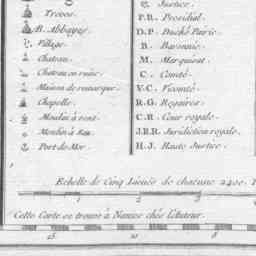 Treves.
B. Abbayes.
Village.
Chateau.
Chateau en ruine.
Maison de remarque.
Chapelle.
Moulin à vent.
Moulin à Eau.
Port de Mer.
Justice.
P.R. Presidial.
D.P. Duché Pairie.
B. Baronnie.
M. Marquisat.
C. Comté.
V.C. Vicomté.
R.G. Regaires.
C.R. Cour royale.
J.R.R. Juridiction royale.
H.J. Haute Justice.
Echelle de Cinq Lieues de chacune 2400.
1 2 3
Cette Carte se trouve à Nantes chés l'Auteur.
15 10 5